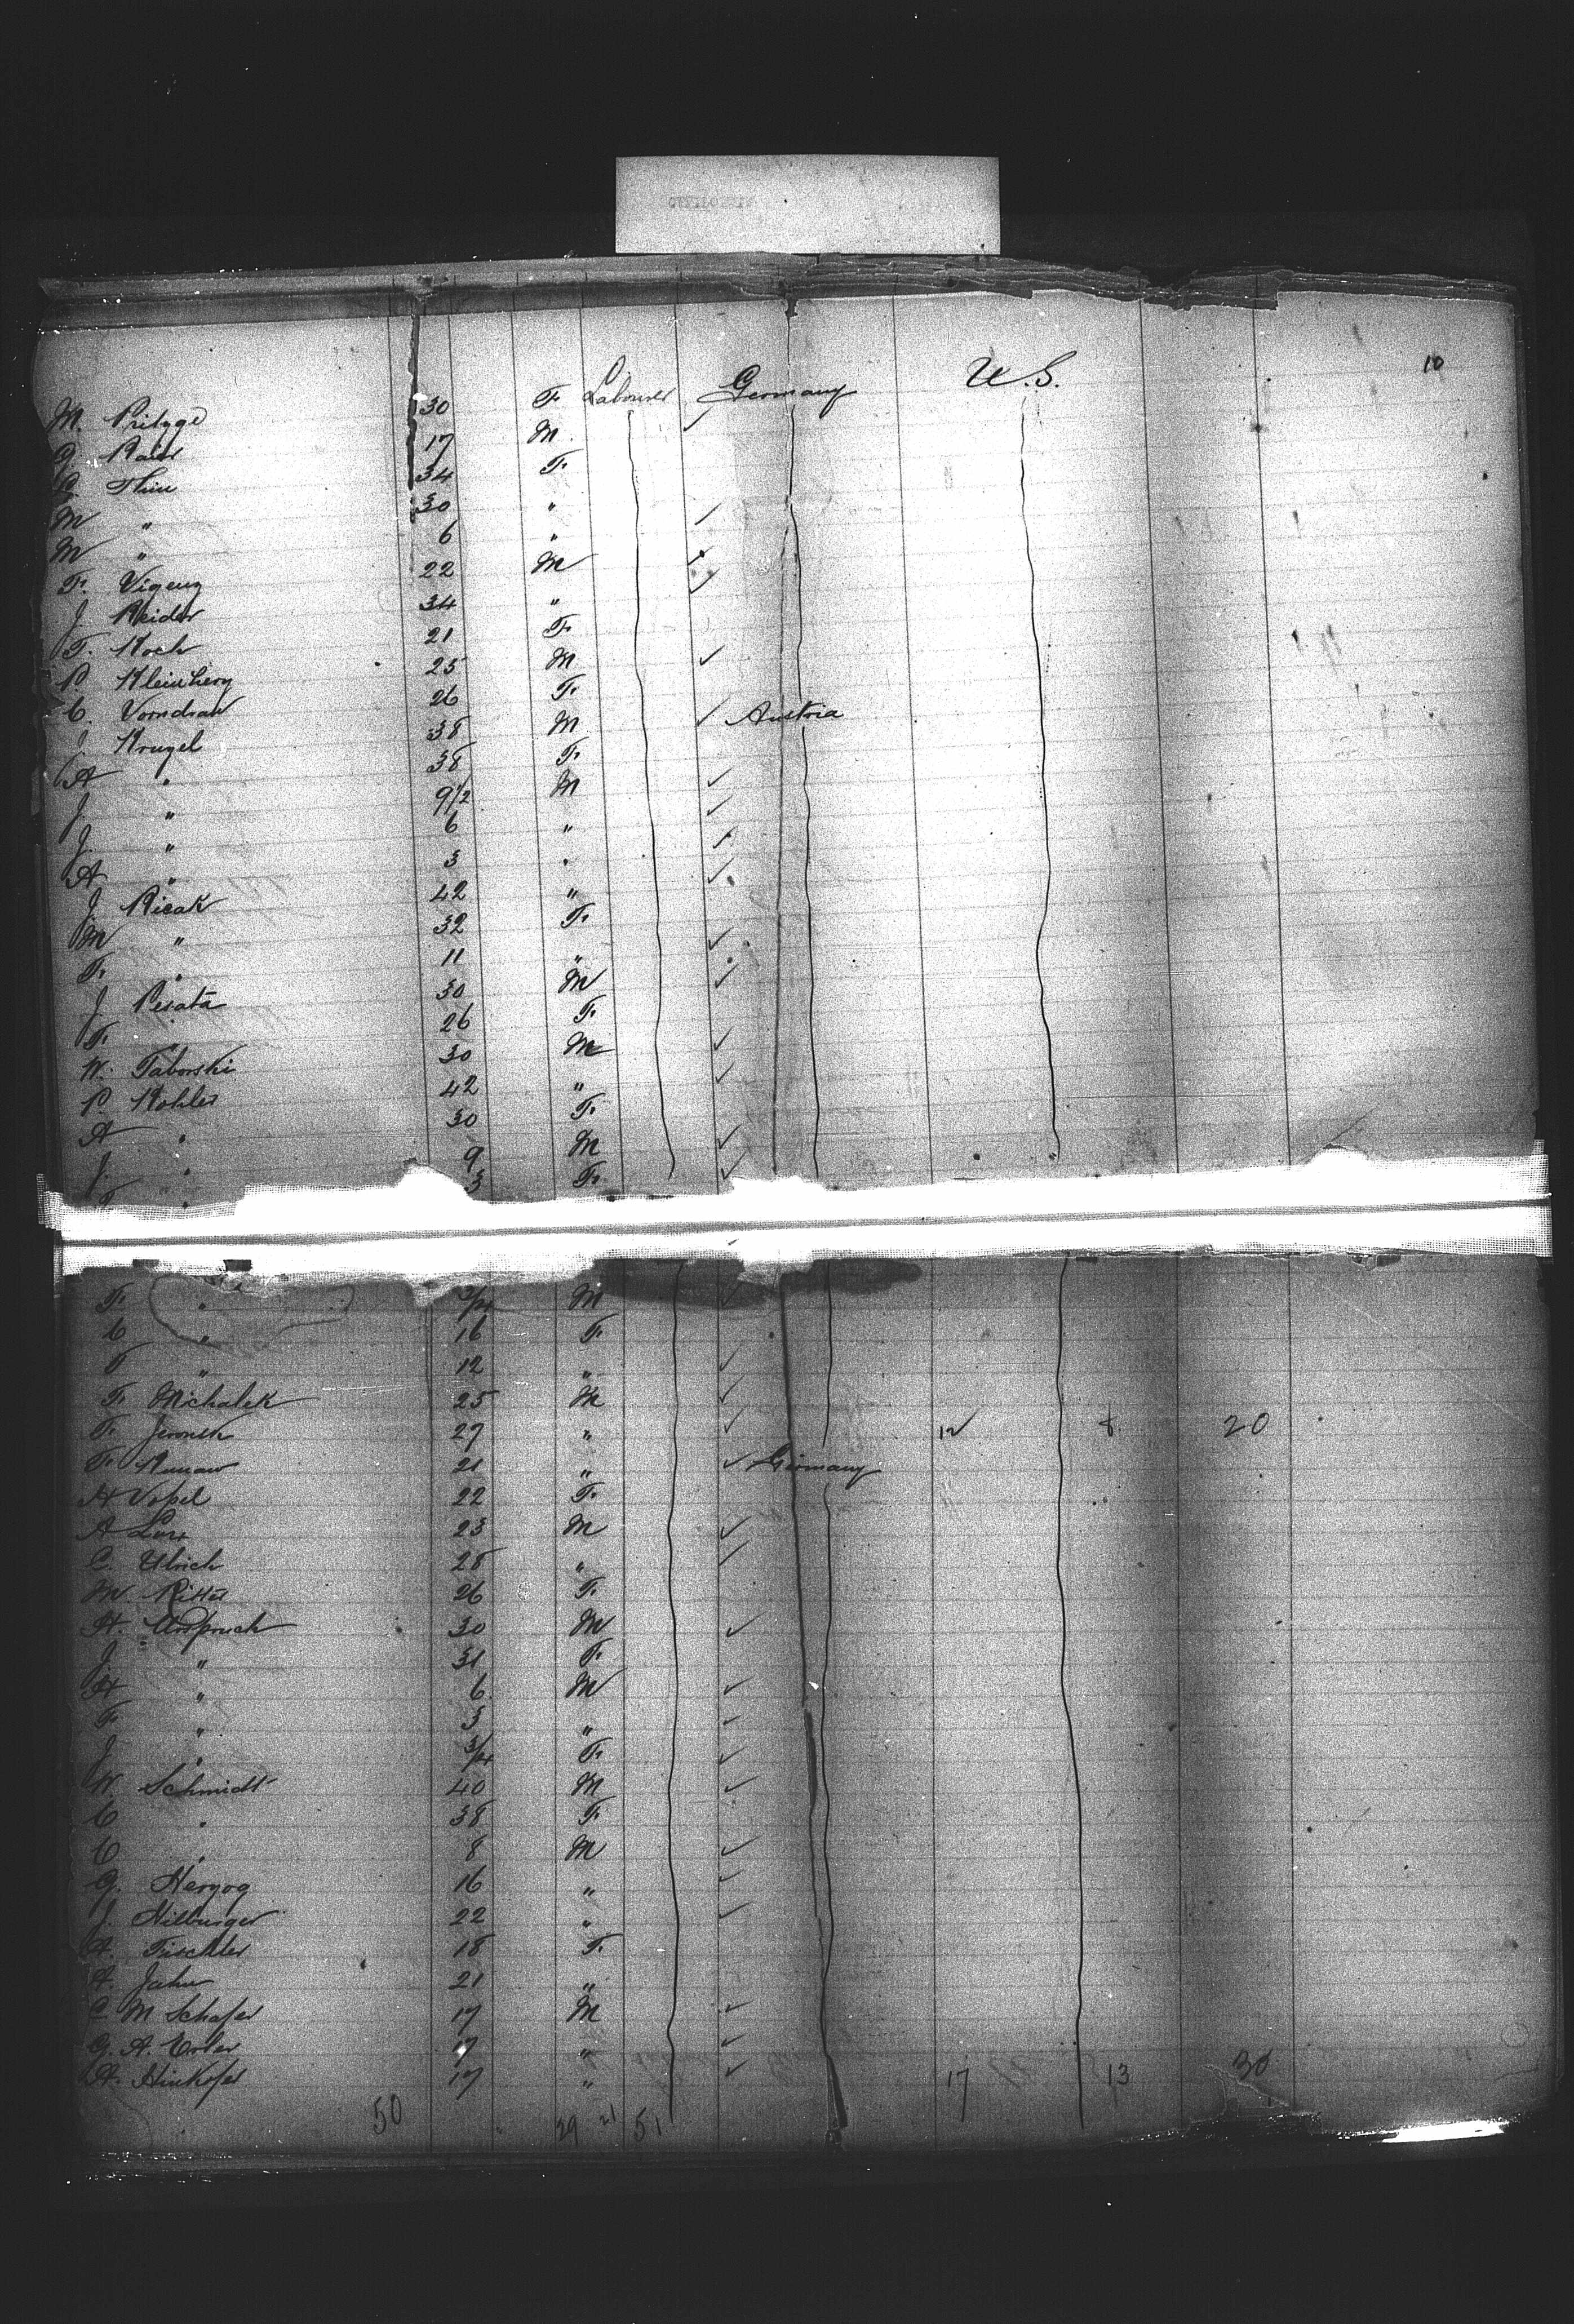 10
M. Pritzge 30 F Labourer Germany U.S.
G. 17 M
Thiu 34 F
M " 30 "
M " 6 "
F. Vigeuz 22 M
J. Reider 34 "
F. Koch 21 F
P. Kleinberg 25 M
C. Vorndran 26 F
J. Krugel 38 M Austria
A " 38 F
J. " 9 1/2 M
J. " 6 "
A " 3 "
J. Ricak 42 "
M " 32 F
F. " 11 "
J. Pesata 30 M
F. " 26 F
W. Taborski 30 M
P. Kohler 42 "
A " 30 F
J. " 9 M
F " 3 F
F. " 3/4 M
C " 16 F
" 12 "
F. Michalek 25 M
F. 27 " 12 8 20
F. 21 " Germany
A Vopel 22 F
A 23 M
C. Ulrich 28 "
M. Ritter 26 F
H. Anspruch 30 M
J " 31 F
H " 6 M
F " 3 "
J " 3/4 F
W. Schmidt 40 M
C " 38 F
C " 8 M
G. Herzog 16 "
J. Hilburger 22 "
A. Tischler 18 F
A. Jahn 21 "
C. M Schafer 17 M
G. A. Erler 17 "
A. Hinkofer 17 " 17 13 30
50 29 21 51